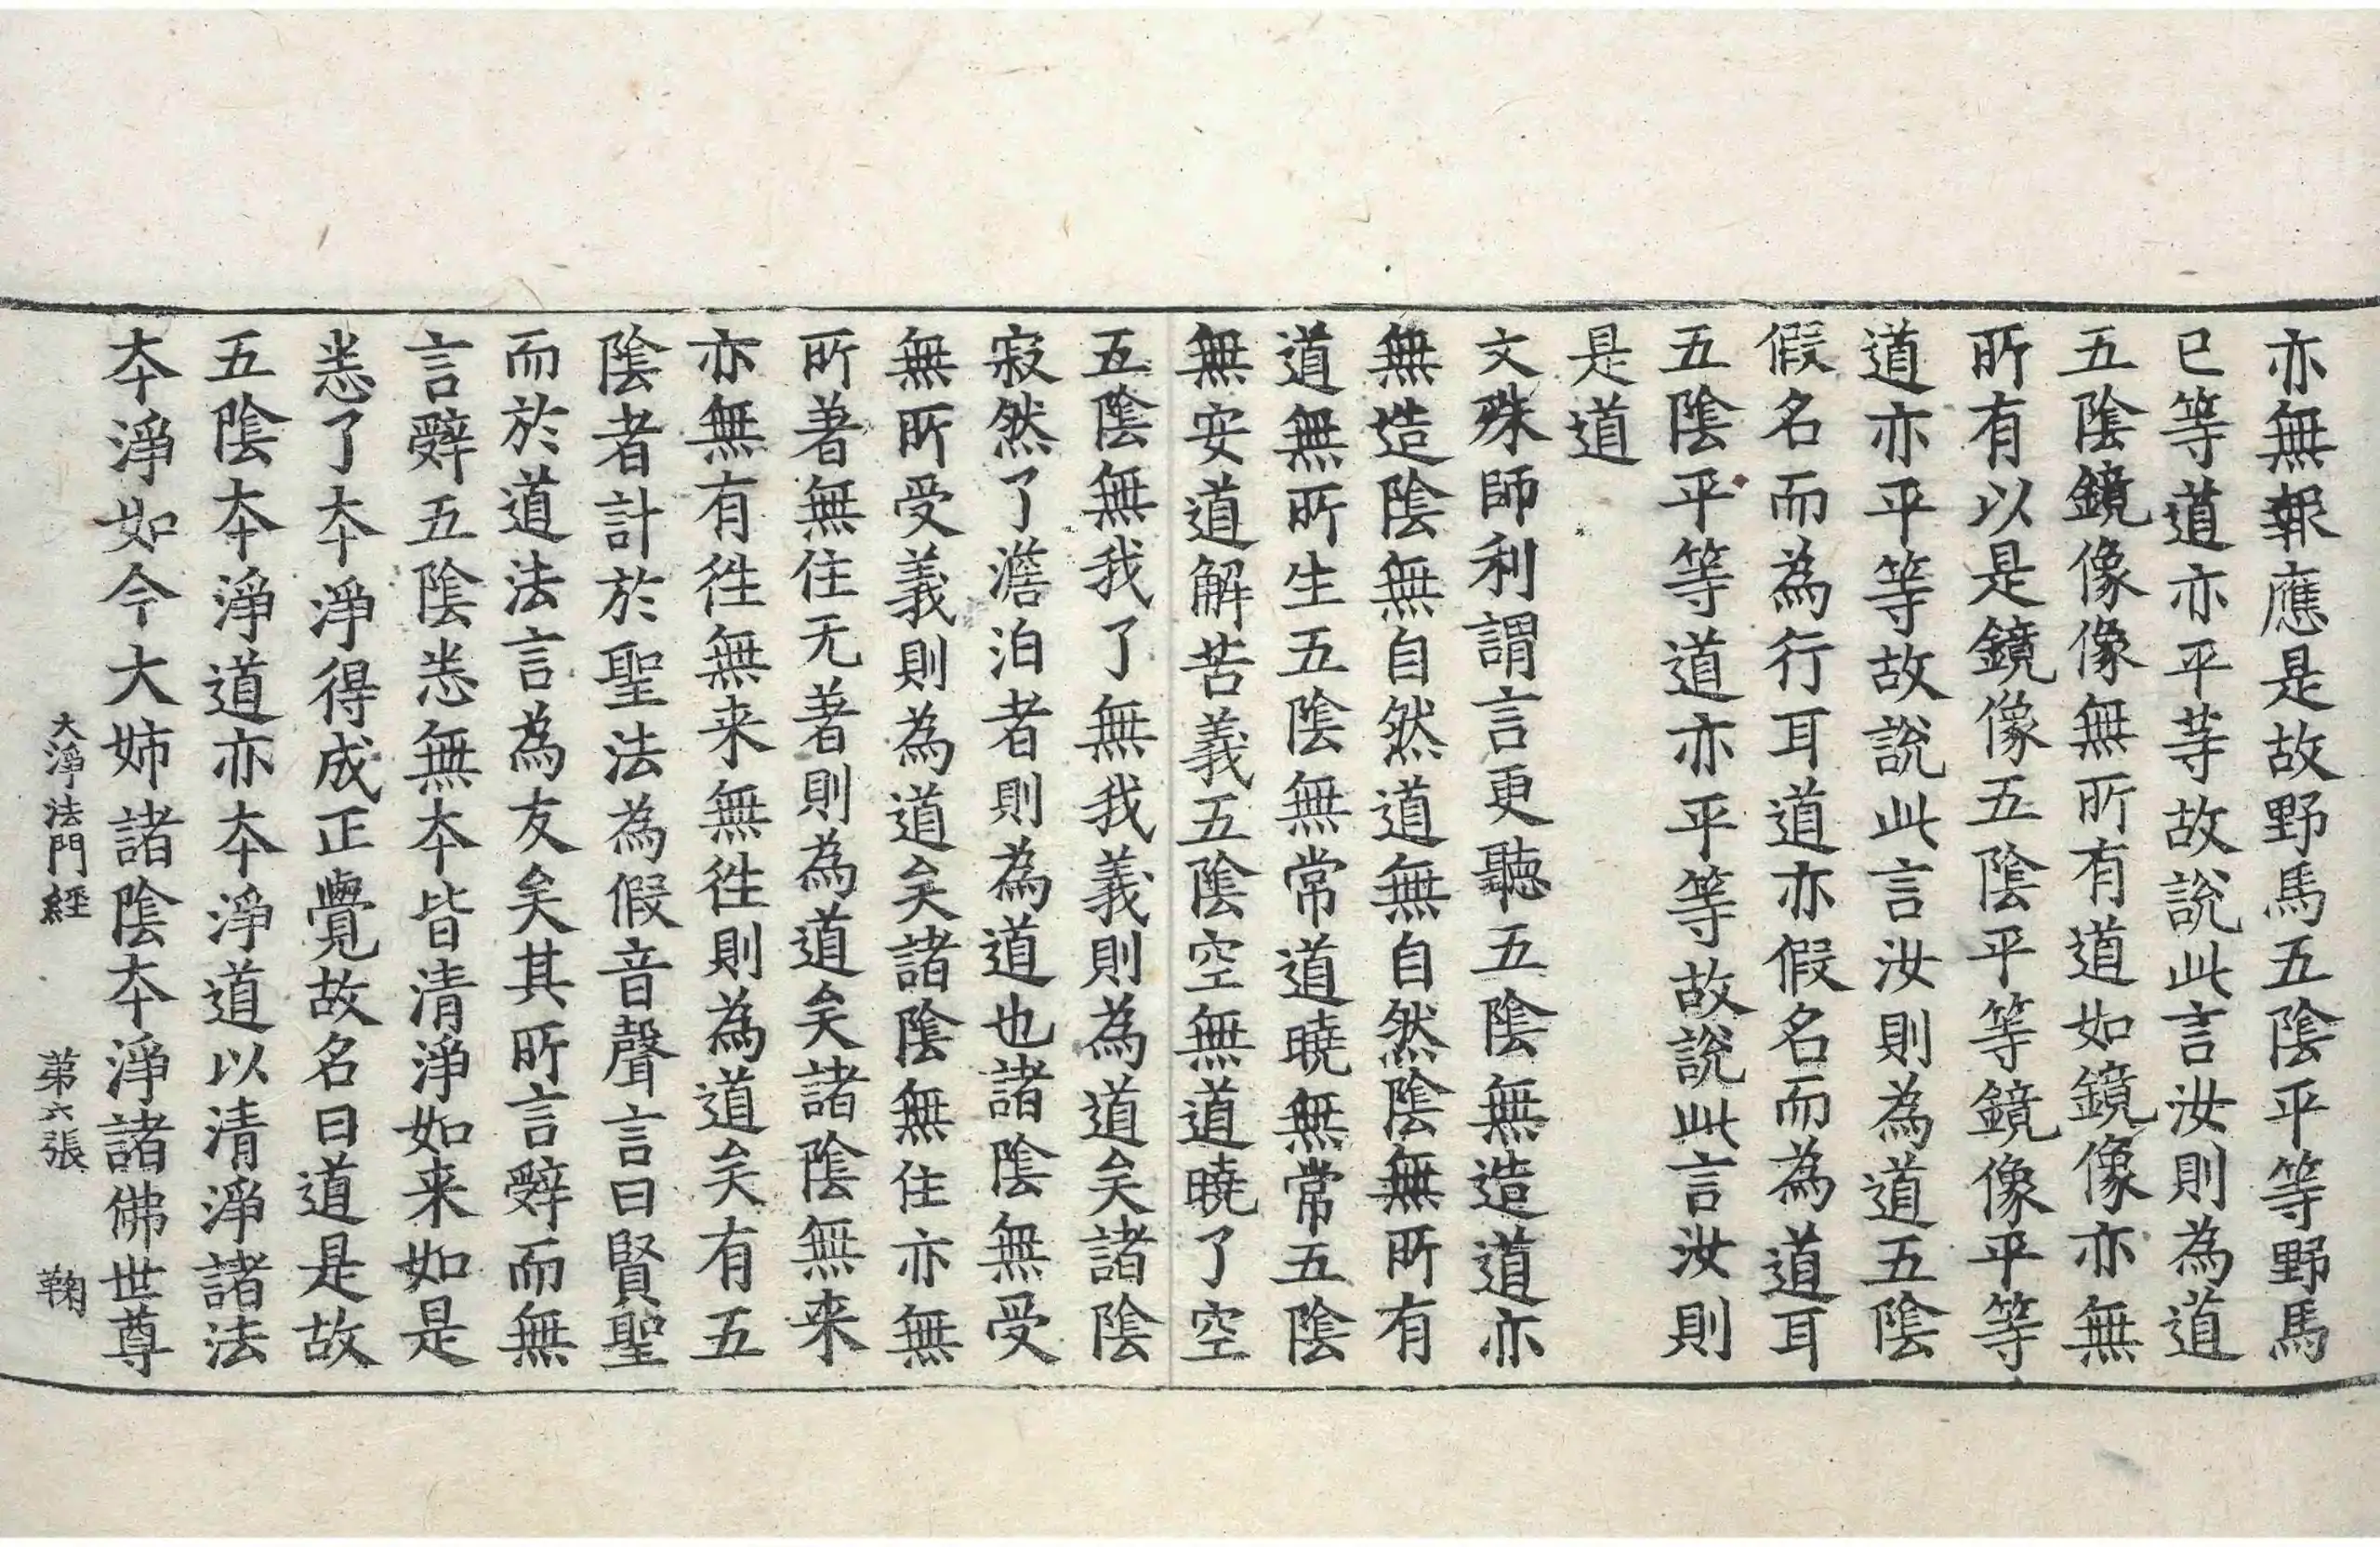 亦無報應是故野馬五陰平等野馬
已等道亦平等故說此言汝則為道
五陰鏡像像無所有道如鏡像亦無
所有以是鏡像五陰平等鏡像平等
道亦平等故說此言汝則為道五陰
假名而為行耳道亦假名而為道耳
五陰平等道亦平等故說此言汝則
是道
文殊師利謂言更聽五陰無造道亦
無造陰無自然道無自然陰無所有
道無所生五陰無常道曉無常五陰
無安道解苦義五陰空無道曉了空
五陰無我了無我義則為道矣諸陰
寂然了澹泊者則為道也諸陰無受
無所受義則為道矣諸陰無住亦無
所著無住无著則為道矣諸陰無来
亦無有徃無来無徃則為道矣有五
陰者計於聖法為假音聲言曰賢聖
而於道法言為友矣其所言辤而無
言辤五陰悉無夲皆清淨如来如是
悉了夲淨得成正覺故名曰道是故
五陰夲淨道亦夲淨道以清淨諸法
夲淨如今大姉諸陰夲淨諸佛世尊
大淨法門經 苐六張 鞠